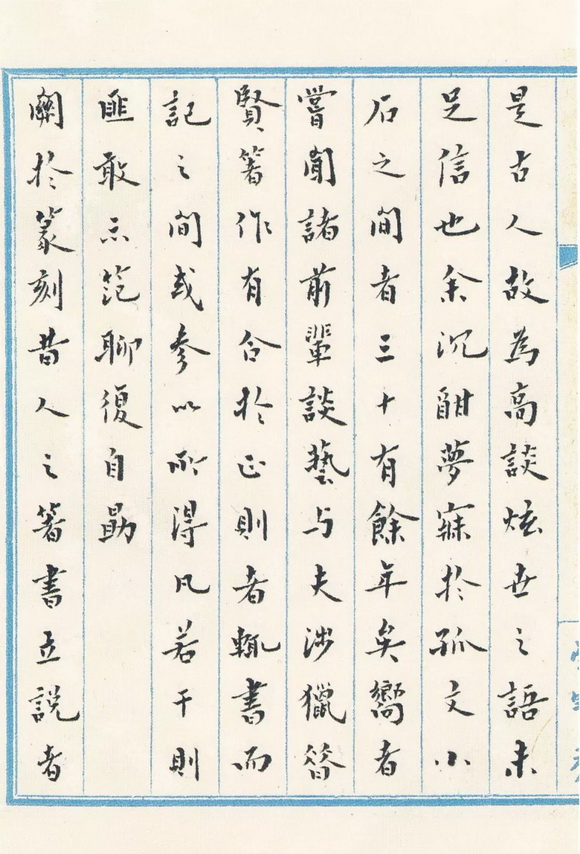 是古人故為高談炫世之語未
足信也余沉酣夢寐於孤文小
石之間者三十有餘年矣嚮者
嘗聞諸前輩談藝与夫涉獵
賢箸作有合於正則者輒書而
記之間或參以所得凡若干則
匪敢示笵聊復自勗
關於篆刻昔人之箸書立說者